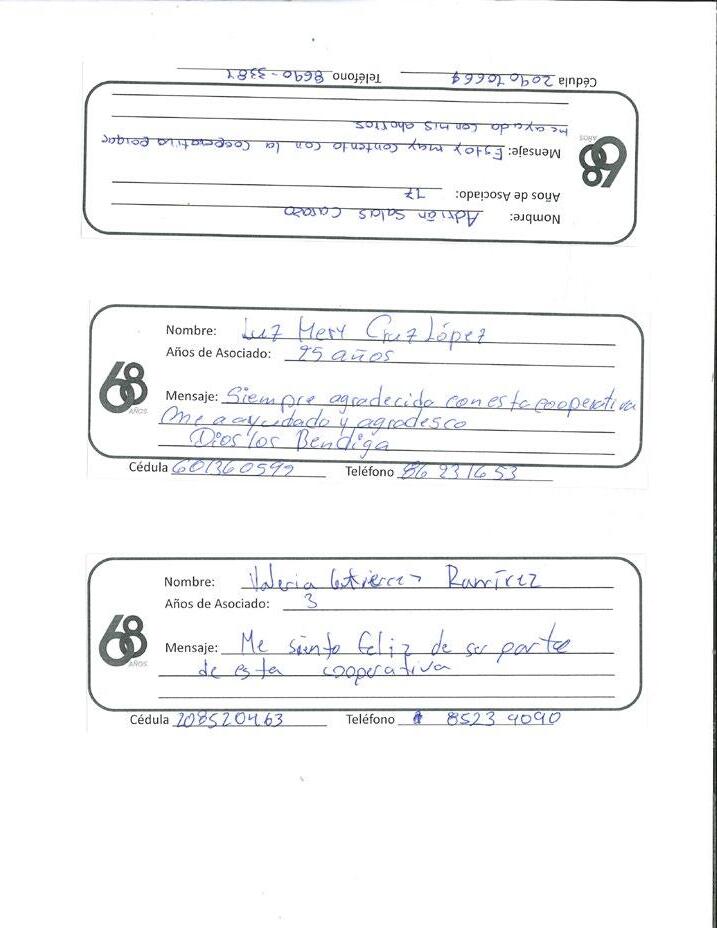 Nombre: Adrián Salas Casazo
Años de Asociado: 17
Mensaje: Estoy muy contento con la Cooperativa porque
me ayuda con mis ahorros
68 AÑOS
Cédula Teléfono 8690-3387
Nombre: Luz Mery Cruz López
Años de Asociado: 25 años
68 AÑOS
Mensaje: Siempre agradecida con esta cooperativa
me a ayudado y agradesco
Dios los Bendiga
Cédula 601360599 Teléfono 86 231653
Nombre: Valeria Gutierrez Ramírez
Años de Asociado: 3
68 AÑOS
Mensaje: Me siento feliz de ser parte
de esta cooperativa
Cédula 208520463 Teléfono 8523 4090